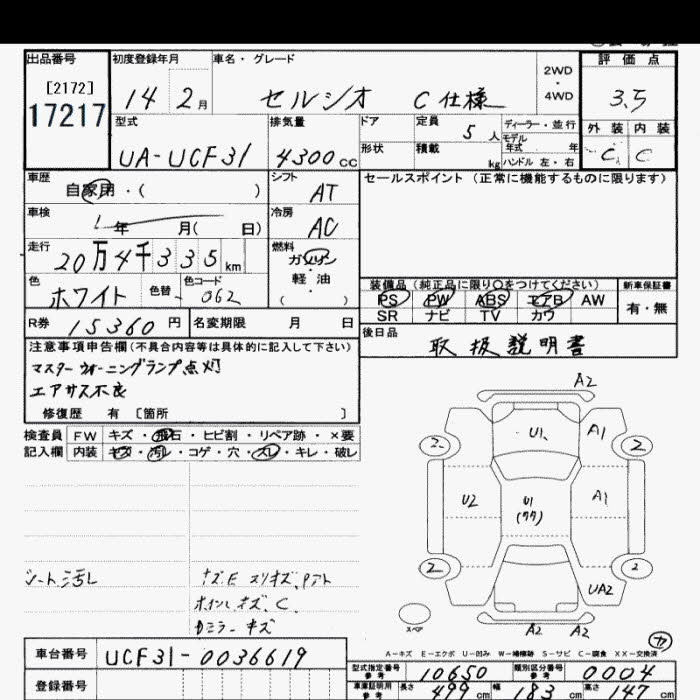 出品番号 初度登録年月 車名・グレード 評価点
[2172]
17217
14 2月 セルシオ C仕様 2WD・4WD 3.5
型式 排気量 ドア 定員 5人 ディーラー・並行 外装 内装
モデル年式 年
UA-UCF31 4300cc 形状 積載 kg ハンドル 左・右 C C
車歴 自家用・( ) シフト AT セールスポイント (正常に機能するものに限ります)
車検 年 月( 日) 冷房 AC
走行 20万4千335km 燃料 ガソリン・軽油 ( )
色 ホワイト 色替 色コード 062
装備品 (純正品に限り○をつけてください) 新車保証書
PS PW ABS エアB AW 有・無
SR ナビ TV カワ
R券 15360円 名変期限 月 日
後日品 取扱説明書
注意事項申告欄(不具合内容等は具体的に記入して下さい)
マスターウォーニングランプ点灯
エアサス不良
修復歴 有 〔箇所 〕
検査員 FW キズ・飛石・ヒビ割・リペア跡・×要
記入欄 内装 キズ・汚レ・コゲ・穴・スレ・キレ・破レ
A2
U1 A1
2 2
U2 U1 A1
(ワワ)
2 2
UA2
スペア
A2 A2
カ
シート汚レ
ホイールキズ、C
Dミラーキズ
A-キズ E-エクボ U-凹み W-補修跡 S-サビ C-腐食 XX-交換済
車台番号 UCF31-0036619
登録番号
型式指定番号 参考 10650 類別区分番号 参考 0004
車庫証明用 参考 長さ 499cm 幅 183cm 高さ 147cm